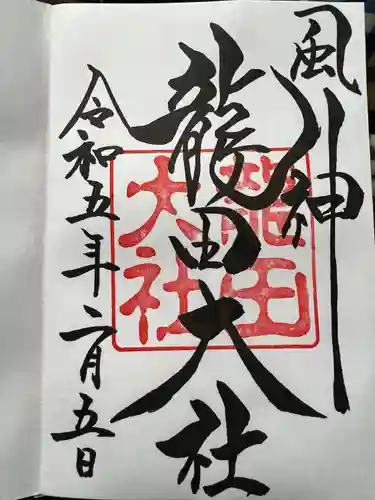 風神
龍田大社
龍田
大社
令和五年二月五日